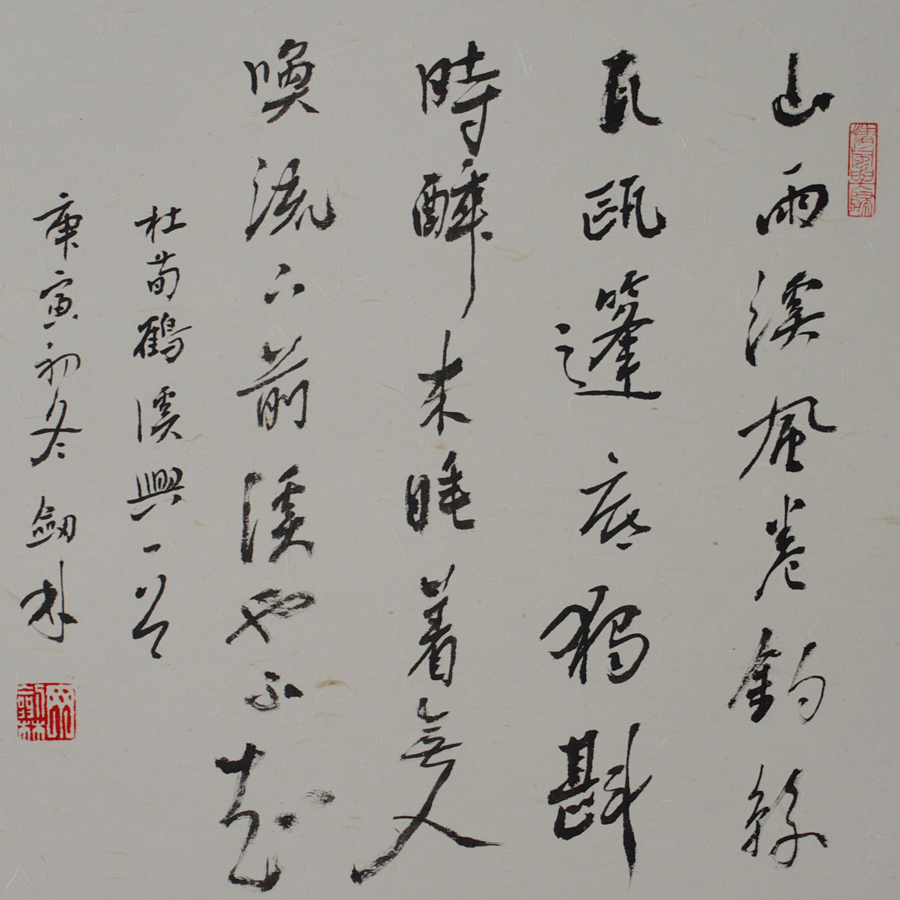 山雨溪風卷釣絲
瓦甌篷底獨斟
時醉来睡着無人
喚流下前溪也不知
杜荀鶴溪興一首
庚寅初冬 劒林